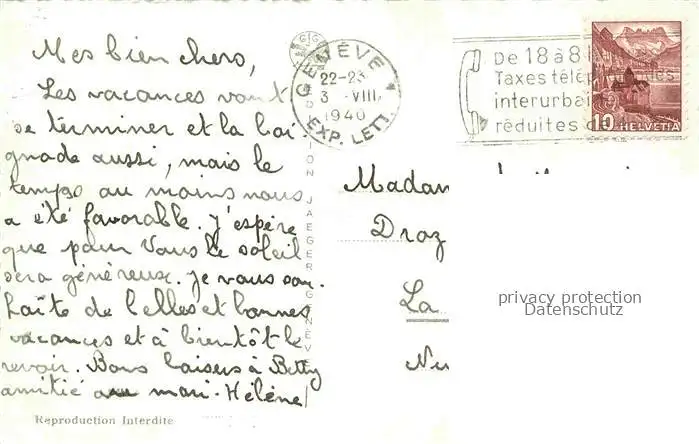 Mes bien chers,
Les vacances vont
se terminer et la bai
gnade aussi, mais le
temps au moins nous
a été favorable. J'espère
que pour Vous le soleil
sera généreux. Je vous sou-
haite de belles et bonnes
vacances et à bientôt le
revoir. Bons baisers à Betty
amitié au mari. Hélène
Reproduction Interdite
ON JAEGER GENÈVE
GENÈVE 1
22-23
3 VIII
1940
EXP. LETT.
De 18 à 8 h
Taxes télép
interurbai
réduites de
10 HELVETIA
Madam
Droz
La
Neu
privacy protection
Datenschutz